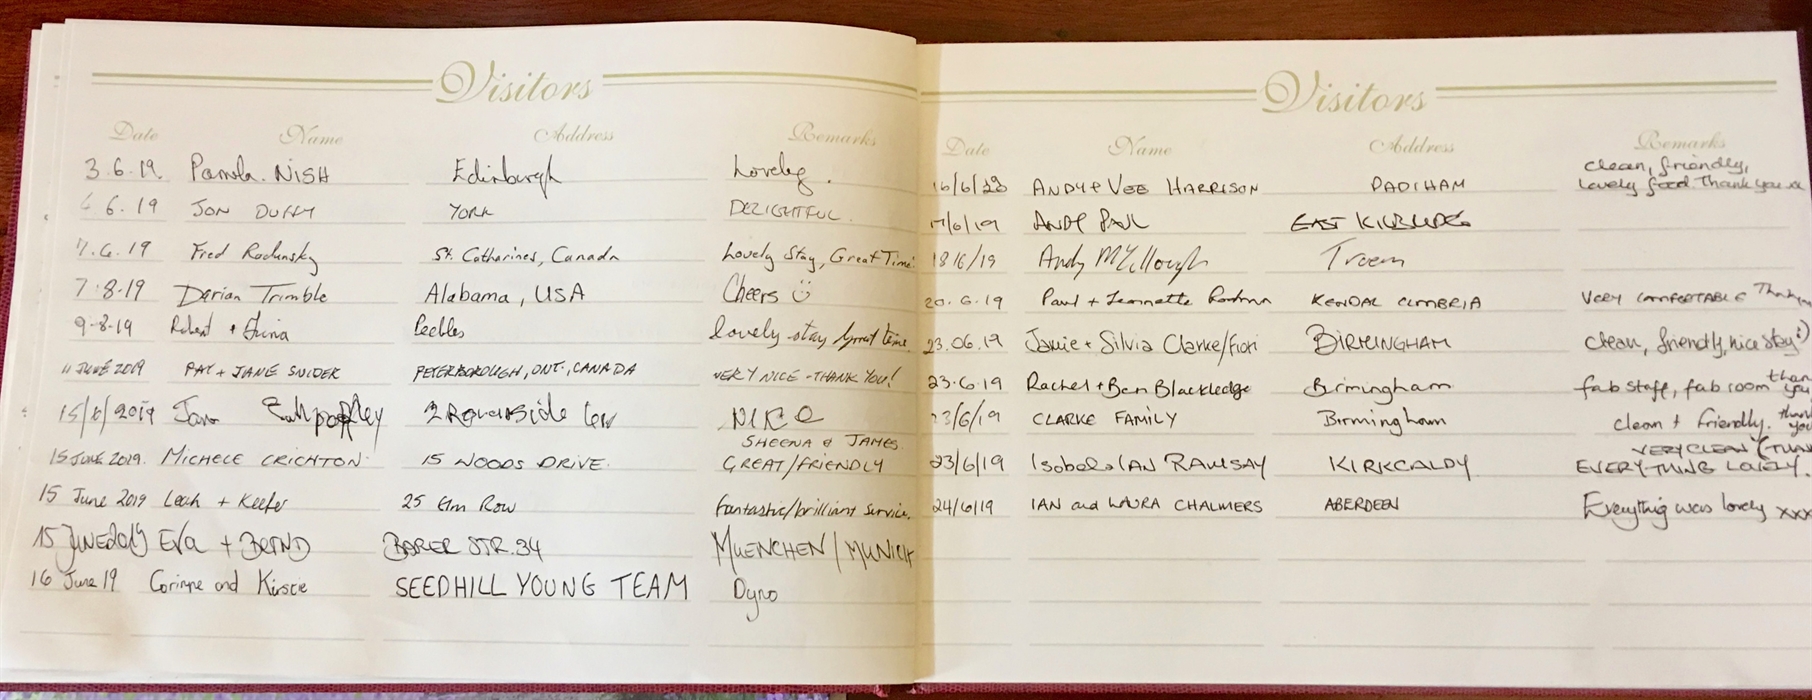 Visitors
Date Name Address Remarks
3.6.19. Pamela. NISH Edinburgh Lovely.
6.19 JON DUFFY YORK DELIGHTFUL.
7.6.19 Fred Radunsky St. Catharines, Canada Lovely Stay, Great Time!
7.8.19 Darian Trimble Alabama, USA Cheers
9.8.19 Robert + Peebles lovely stay great time
11 JUNE 2019 PAT + JANE SNIDER PETERBOROUGH, ONT., CANADA VERY NICE - THANK YOU!
15/6/2019 2 NICE
SHEENA & JAMES
15 JUNE 2019. MICHELE CRICHTON 15 WOODS DRIVE. GREAT/FRIENDLY
15 June 2019 Leah + Keefer 25 Elm Row Fantastic/brilliant service.
15 JUNE 2019 Eva + BERND BARER STR. 34 MUENCHEN / MUNICH
16 June 19 Corinne and Kirstie SEEDHILL YOUNG TEAM Dyno
Visitors
Date Name Address Remarks
clean, friendly,
16/6/ ANDY + VEE HARRISON PADIHAM lovely food. Thank you xx
17/6/19 ANDY PAUL EAST KILBRIDE
18/6/19 Andy Troon
20.6.19 Paul + Jeannette KENDAL CUMBRIA VERY COMFORTABLE Thank
23.06.19 Jamie + Silvia Clarke/Fiori BIRMINGHAM Clean, friendly, nice stay :)
23.6.19 Rachel + Ben Blackledge Birmingham fab staff, fab room thank you
23/6/19 CLARKE FAMILY Birmingham clean + friendly. thank you
VERY CLEAN
23/6/19 Isobel & IAN RAMSAY KIRKCALDY EVERYTHING LOVELY.
24/6/19 IAN and LAURA CHALMERS ABERDEEN Everything was lovely xxx